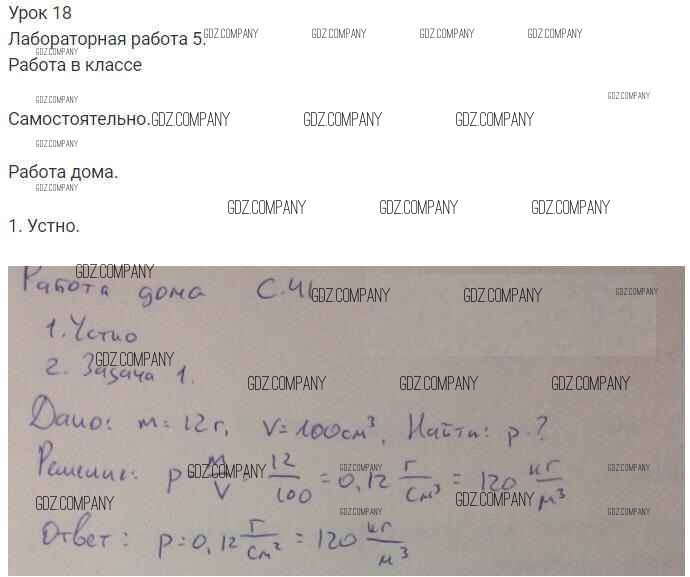 Урок 18
Лабораторная работа 5. GDZ.COMPANY GDZ.COMPANY GDZ.COMPANY GDZ.COMPANY
GDZ.COMPANY
Работа в классе
GDZ.COMPANY GDZ.COMPANY
Самостоятельно. GDZ.COMPANY GDZ.COMPANY GDZ.COMPANY
GDZ.COMPANY
Работа дома.
GDZ.COMPANY
GDZ.COMPANY GDZ.COMPANY GDZ.COMPANY
1. Устно.
GDZ.COMPANY
Работа дома С.41 GDZ.COMPANY GDZ.COMPANY GDZ.COMPANY
1. Устно
GDZ.COMPANY
2. Задача 1.
GDZ.COMPANY GDZ.COMPANY GDZ.COMPANY
Дано: m = 12 г, V = 100 см³, Найти: p - ?
Решение: p = m/V = 12/100 = 0,12 г/см³ = 120 кг/м³
GDZ.COMPANY GDZ.COMPANY GDZ.COMPANY
GDZ.COMPANY GDZ.COMPANY GDZ.COMPANY GDZ.COMPANY
Ответ: p = 0,12 г/см² = 120 кг/м³